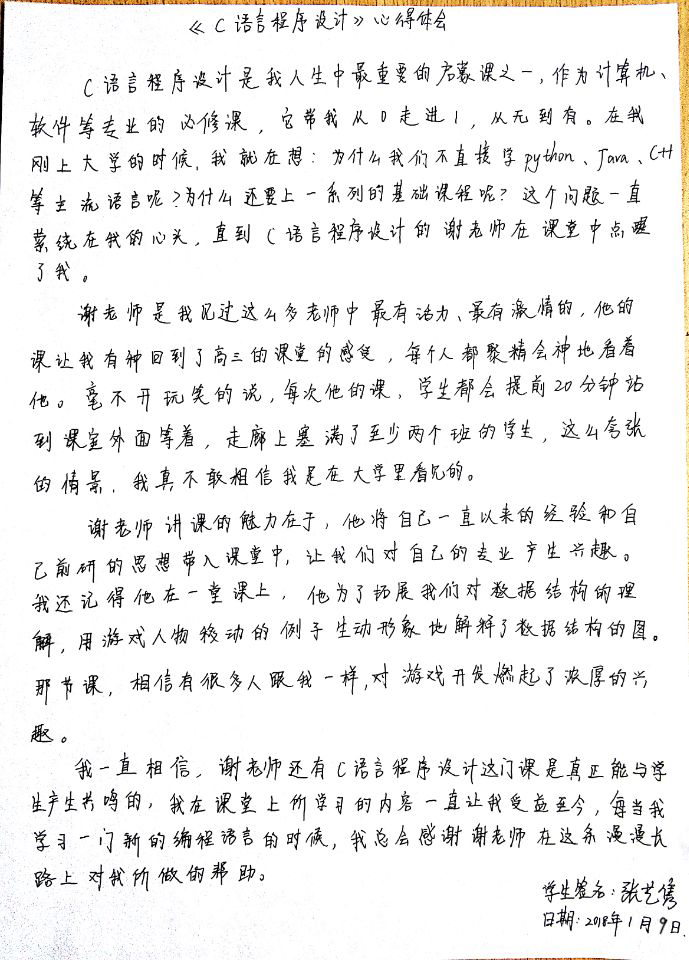 《C语言程序设计》心得体会
C语言程序设计是我人生中最重要的启蒙课之一,作为计算机、
软件等专业的必修课,它带我从0走进1,从无到有。在我
刚上大学的时候,我就在想:为什么我们不直接学python、Java、C++
等主流语言呢?为什么还要上一系列的基础课程呢?这个问题一直
萦绕在我的心头,直到C语言程序设计的谢老师在课堂中点醒
了我。
谢老师是我见过这么多老师中最有活力、最有激情的,他的
课让我有种回到了高三的课堂的感觉,每个人都聚精会神地看着
他。毫不开玩笑的说,每次他的课,学生都会提前20分钟站
到课室外面等着,走廊上塞满了至少两个班的学生,这么夸张
的情景,我真不敢相信我是在大学里看见的。
谢老师讲课的魅力在于,他将自己一直以来的经验和自
己前研的思想带入课堂中,让我们对自己的专业产生兴趣。
我还记得他在一堂课上,他为了拓展我们对数据结构的理
解,用游戏人物移动的例子生动形象地解释了数据结构的图。
那节课,相信有很多人跟我一样,对游戏开发燃起了浓厚的兴
趣。
我一直相信,谢老师还有C语言程序设计这门课是真正能与学
生产生共鸣的,我在课堂上所学习的内容一直让我受益至今,每当我
学习一门新的编程语言的时候,我总会感谢谢老师在这条漫漫长
路上对我所做的帮助。
学生签名:张艺隽
日期:2018年1月9日.